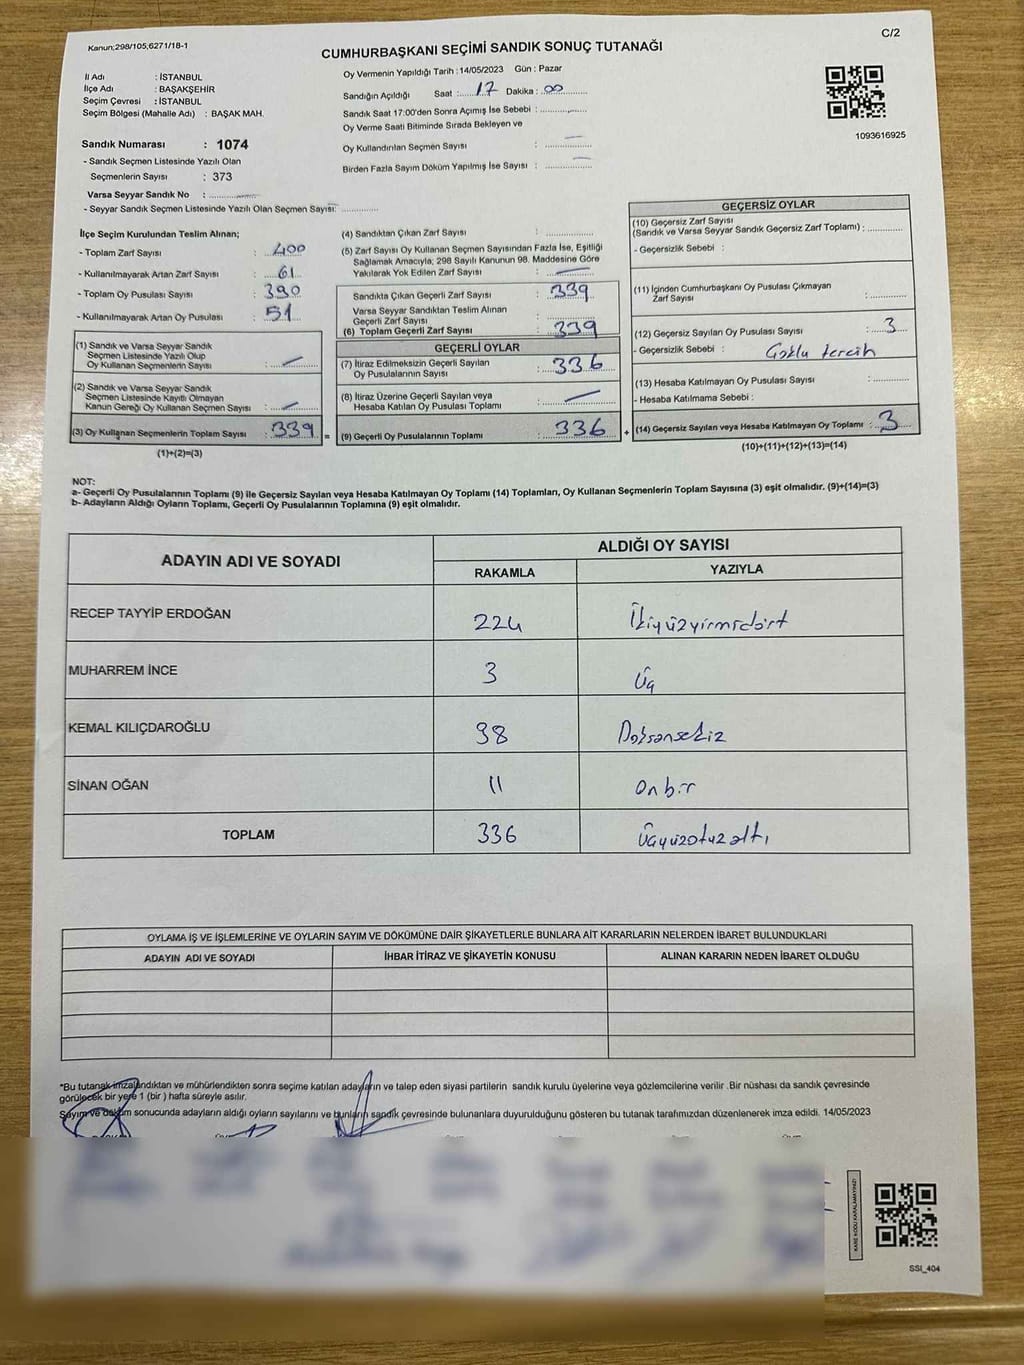 Kanun;298/105,6271/18-1
C/2
CUMHURBAŞKANI SEÇİMİ SANDIK SONUÇ TUTANAĞI
İl Adı : İSTANBUL
İlçe Adı : BAŞAKŞEHİR
Seçim Çevresi : İSTANBUL
Seçim Bölgesi (Mahalle Adı) : BAŞAK MAH.
Oy Vermenin Yapıldığı Tarih : 14/05/2023 Gün : Pazar
Sandığın Açıldığı Saat : 17 Dakika : 00
Sandık Saat 17:00'den Sonra Açımış İse Sebebi :
Oy Verme Saati Bitiminde Sırada Bekleyen ve
Oy Kullandırılan Seçmen Sayısı : —
Birden Fazla Sayım Döküm Yapılmış İse Sayısı : —
1093616925
Sandık Numarası : 1074
- Sandık Seçmen Listesinde Yazılı Olan
Seçmenlerin Sayısı : 373
Varsa Seyyar Sandık No :
- Seyyar Sandık Seçmen Listesinde Yazılı Olan Seçmen Sayısı:
İlçe Seçim Kurulundan Teslim Alınan;
- Toplam Zarf Sayısı : 400
- Kullanılmayarak Artan Zarf Sayısı : 61
- Toplam Oy Pusulası Sayısı : 390
- Kullanılmayarak Artan Oy Pusulası : 51
(1) Sandık ve Varsa Seyyar Sandık
Seçmen Listesinde Yazılı Olup
Oy Kullanan Seçmenlerin Sayısı : —
(2) Sandık ve Varsa Seyyar Sandık
Seçmen Listesinde Kayıtlı Olmayan
Kanun Gereği Oy Kullanan Seçmen Sayısı : —
(3) Oy Kullanan Seçmenlerin Toplam Sayısı : 339
(1)+(2)=(3)
(4) Sandıktan Çıkan Zarf Sayısı :
(5) Zarf Sayısı Oy Kullanan Seçmen Sayısından Fazla İse, Eşitliği
Sağlamak Amacıyla; 298 Sayılı Kanunun 98. Maddesine Göre
Yakılarak Yok Edilen Zarf Sayısı : —
Sandıkta Çıkan Geçerli Zarf Sayısı : 339
Varsa Seyyar Sandıktan Teslim Alınan
Geçerli Zarf Sayısı :
(6) Toplam Geçerli Zarf Sayısı : 339
GEÇERLİ OYLAR
(7) İtiraz Edilmeksizin Geçerli Sayılan
Oy Pusulalarının Sayısı : 336
(8) İtiraz Üzerine Geçerli Sayılan veya
Hesaba Katılan Oy Pusulası Toplamı : —
= (9) Geçerli Oy Pusulalarının Toplamı : 336 +
GEÇERSİZ OYLAR
(10) Geçersiz Zarf Sayısı
(Sandık ve Varsa Seyyar Sandık Geçersiz Zarf Toplamı) :
- Geçersizlik Sebebi :
(11) İçinden Cumhurbaşkanı Oy Pusulası Çıkmayan
Zarf Sayısı :
(12) Geçersiz Sayılan Oy Pusulası Sayısı : 3
- Geçersizlik Sebebi : Çoklu tercih
(13) Hesaba Katılmayan Oy Pusulası Sayısı :
- Hesaba Katılmama Sebebi :
(14) Geçersiz Sayılan veya Hesaba Katılmayan Oy Toplamı : 3
(10)+(11)+(12)+(13)=(14)
NOT:
a- Geçerli Oy Pusulalarının Toplamı (9) ile Geçersiz Sayılan veya Hesaba Katılmayan Oy Toplamı (14) Toplamları, Oy Kullanan Seçmenlerin Toplam Sayısına (3) eşit olmalıdır. (9)+(14)=(3)
b- Adayların Aldığı Oyların Toplamı, Geçerli Oy Pusulalarının Toplamına (9) eşit olmalıdır.
ADAYIN ADI VE SOYADI
ALDIĞI OY SAYISI
RAKAMLA YAZIYLA
RECEP TAYYİP ERDOĞAN 224 İkiyüzyirmidört
MUHARREM İNCE 3 Üç
KEMAL KILIÇDAROĞLU 98 Doksansekiz
SİNAN OĞAN 11 Onbir
TOPLAM 336 Üçyüzotuzaltı
OYLAMA İŞ VE İŞLEMLERİNE VE OYLARIN SAYIM VE DÖKÜMÜNE DAİR ŞİKAYETLERLE BUNLARA AİT KARARLARIN NELERDEN İBARET BULUNDUKLARI
ADAYIN ADI VE SOYADI İHBAR İTİRAZ VE ŞİKAYETİN KONUSU ALINAN KARARIN NEDEN İBARET OLDUĞU
*Bu tutanak imzalandıktan ve mühürlendikten sonra seçime katılan adayların ve talep eden siyasi partilerin sandık kurulu üyelerine veya gözlemcilerine verilir .Bir nüshası da sandık çevresinde
görülecek bir yere 1 (bir ) hafta süreyle asılır.
Sayım ve döküm sonucunda adayların aldığı oyların sayılarını ve bunların sandık çevresinde bulunanlara duyurulduğunu gösteren bu tutanak tarafımızdan düzenlenerek imza edildi. 14/05/2023
KARE KODU KARALAMAYINIZ!
SSI_404